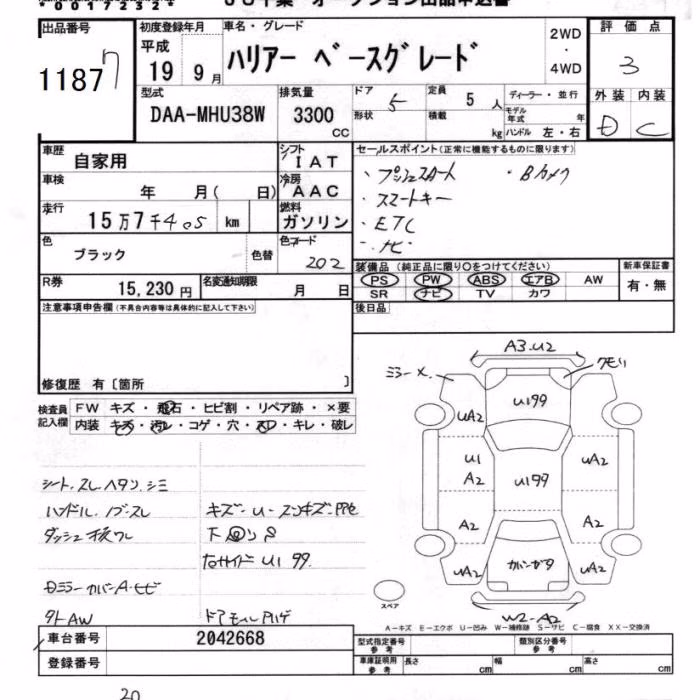 出品番号 初度登録年月 車名・グレード 2WD 評価点
11877 平成 ハリアー ベースグレード ・ 3
19 9月 4WD 外装 内装
型式 排気量 ドア 5 定員 5人 ディーラー・並行 D C
DAA-MHU38W 3300 形状 積載 モデル年式 年
CC kg ハンドル 左・右
車歴 自家用 シフト IAT セールスポイント(正常に機能するものに限ります)
車検 年 月( 日) 冷房 AAC ・プッシュスタート ・Bカメラ
走行 15万7千405 km 燃料 ガソリン ・スマートキー
・ETC
色 ブラック 色替 色コード 202 ・ナビ
装備品(純正品に限り○をつけてください) 新車保証書
R券 15,230円 名変通知期限 月 日 PS PW ABS エアB AW 有・無
SR ナビ TV カワ
注意事項申告欄(不具合内容等は具体的に記入して下さい) 後日品
修復歴 有〔箇所 〕
A3.U2
ミラーX. クモリ
検査員記入欄 FW キズ・飛石・ヒビ割・リペア跡・×要
内装 キズ・汚レ・コゲ・穴・スレ・キレ・破レ
UA2 U199
U1 A2 U199 UA2
A2 A2
UA2 UA2
シート.スレ.ヘタリ.シミ
ハンドル.ノブ.スレ
スペア
W2-A2
A-キズ E-エクボ U-凹み W-補修跡 S-サビ C-腐食 XX-交換済
外AW ドアモールハゲ
車台番号 2042668 型式指定番号 参考 類別区分番号 参考
登録番号 車庫証明用 参考 長さ cm 幅 cm 高さ cm
20